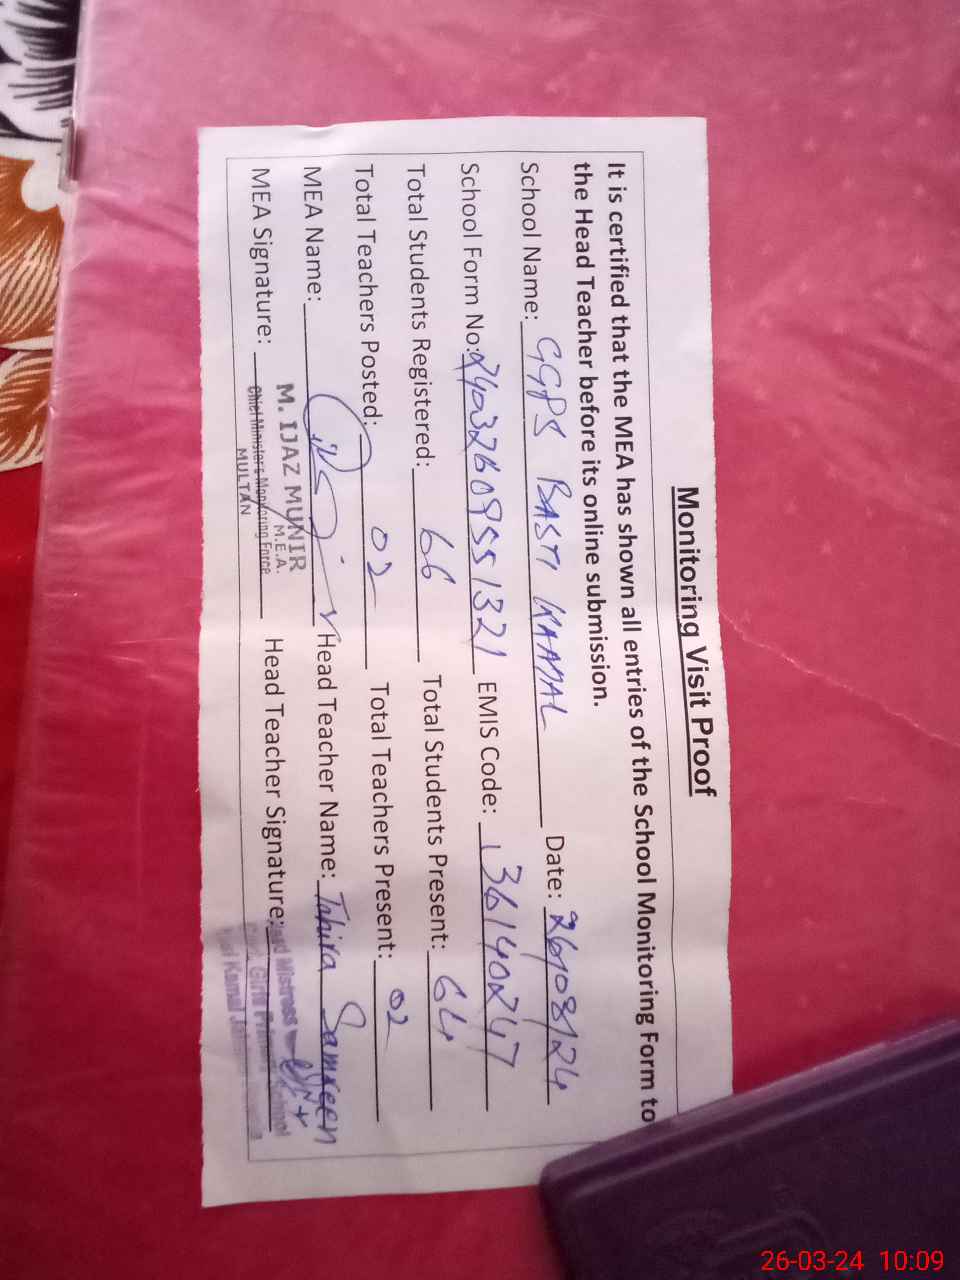 Monitoring Visit Proof
It is certified that the MEA has shown all entries of the School Monitoring Form to
the Head Teacher before its online submission.
School Name: GGPS BASTI KAMAL Date: 26/08/24
School Form No: 24032609551321 EMIS Code: 36140247
Total Students Registered: 66 Total Students Present: 64
Total Teachers Posted: 02 Total Teachers Present: 02
MEA Name: Head Teacher Name: Tahira Samreen
M. IJAZ MUNIR
M.E.A.
MEA Signature: Head Teacher Signature:
Chief Ministers Monitoring Force
MULTAN
Mistress
Girls Primary School
Kamal
26-03-24 10:09